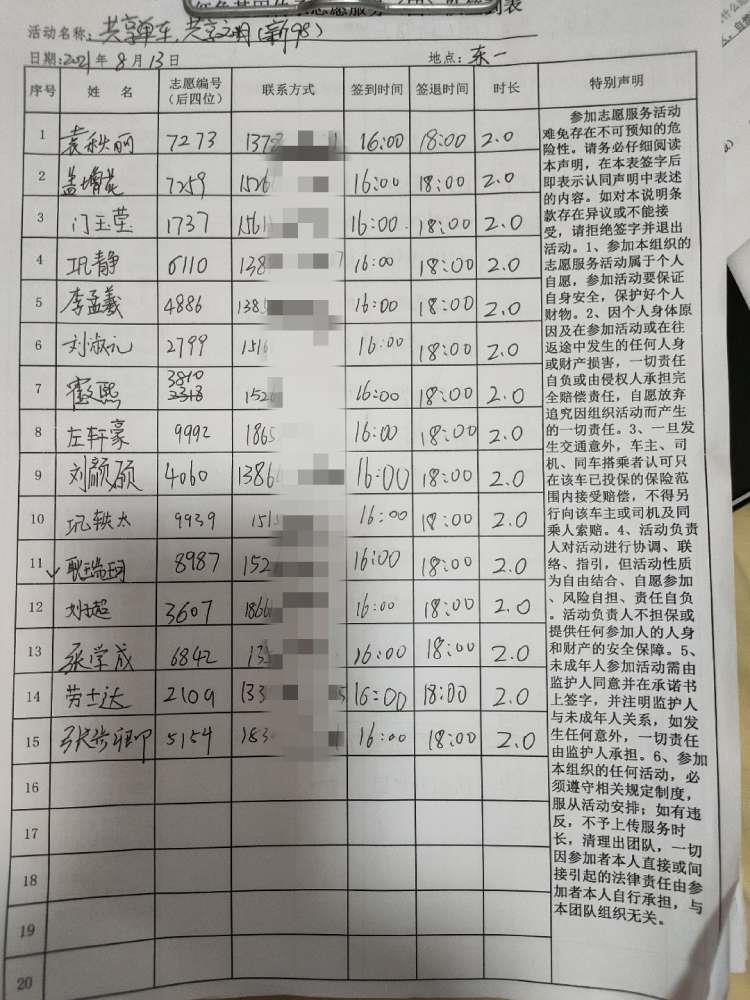 志愿服务
到表
活动名称：共享单车，共享文明（新98）
日期：2021年8月13日 地点：东一
序号 姓 名 志愿编号（后四位） 联系方式 签到时间 签退时间 时长 特别声明
1 袁秋丽 7273 137 16:00 18:00 2.0
2 盖增花 7259 1526 16:00 18:00 2.0
3 门玉莹 1737 1561 16:00 18:00 2.0
4 巩静 6110 138 16:00 18:00 2.0
5 李孟羲 4886 1385 16:00 18:00 2.0
6 刘淑元 2799 1516 16:00 18:00 2.0
7 熙 3810 1520 16:00 18:00 2.0
8 左轩豪 9992 1865 16:00 18:00 2.0
9 刘颜硕 4060 1386 16:00 18:00 2.0
10 巩轶太 9939 151 16:00 18:00 2.0
11 耿瑞珂 8987 152 16:00 18:00 2.0
12 刘超 3607 1866 16:00 18:00 2.0
13 张学成 6842 13 16:00 18:00 2.0
14 劳士达 2109 133 16:00 18:00 2.0
15 张 5154 183 16:00 18:00 2.0
16
17
18
19
20
参加志愿服务活动
难免存在不可预知的危
险性。请务必仔细阅读
本声明，在本表签字后
即表示认同声明中表述
的内容。如对本说明条
款存在异议或不能接
受，请拒绝签字并退出
活动。1、参加本组织的
志愿服务活动属于个人
自愿，参加活动要保证
自身安全，保护好个人
财物。2、因个人身体原
因及在参加活动或在往
返途中发生的任何人身
或财产损害，一切责任
自负或由侵权人承担完
全赔偿责任，自愿放弃
追究因组织活动而产生
的一切责任。3、一旦发
生交通意外，车主、司
机、同车搭乘者认可只
在该车已投保的保险范
围内接受赔偿，不得另
行向该车主或司机及同
乘人索赔。4、活动负责
人对活动进行协调、联
络、指引，但活动性质
为自由结合、自愿参加
、风险自担、责任自负
。活动负责人不担保或
提供任何参加人的人身
和财产的安全保障。5、
未成年人参加活动需由
监护人同意并在承诺书
上签字，并注明监护人
与未成年人关系，如发
生任何意外，一切责任
由监护人承担。6、参加
本组织的任何活动，必
须遵守相关规定制度，
服从活动安排；如有违
反，不予上传服务时
长，清理出团队，一切
因参加者本人直接或间
接引起的法律责任由参
加者本人自行承担，与
本团队组织无关。